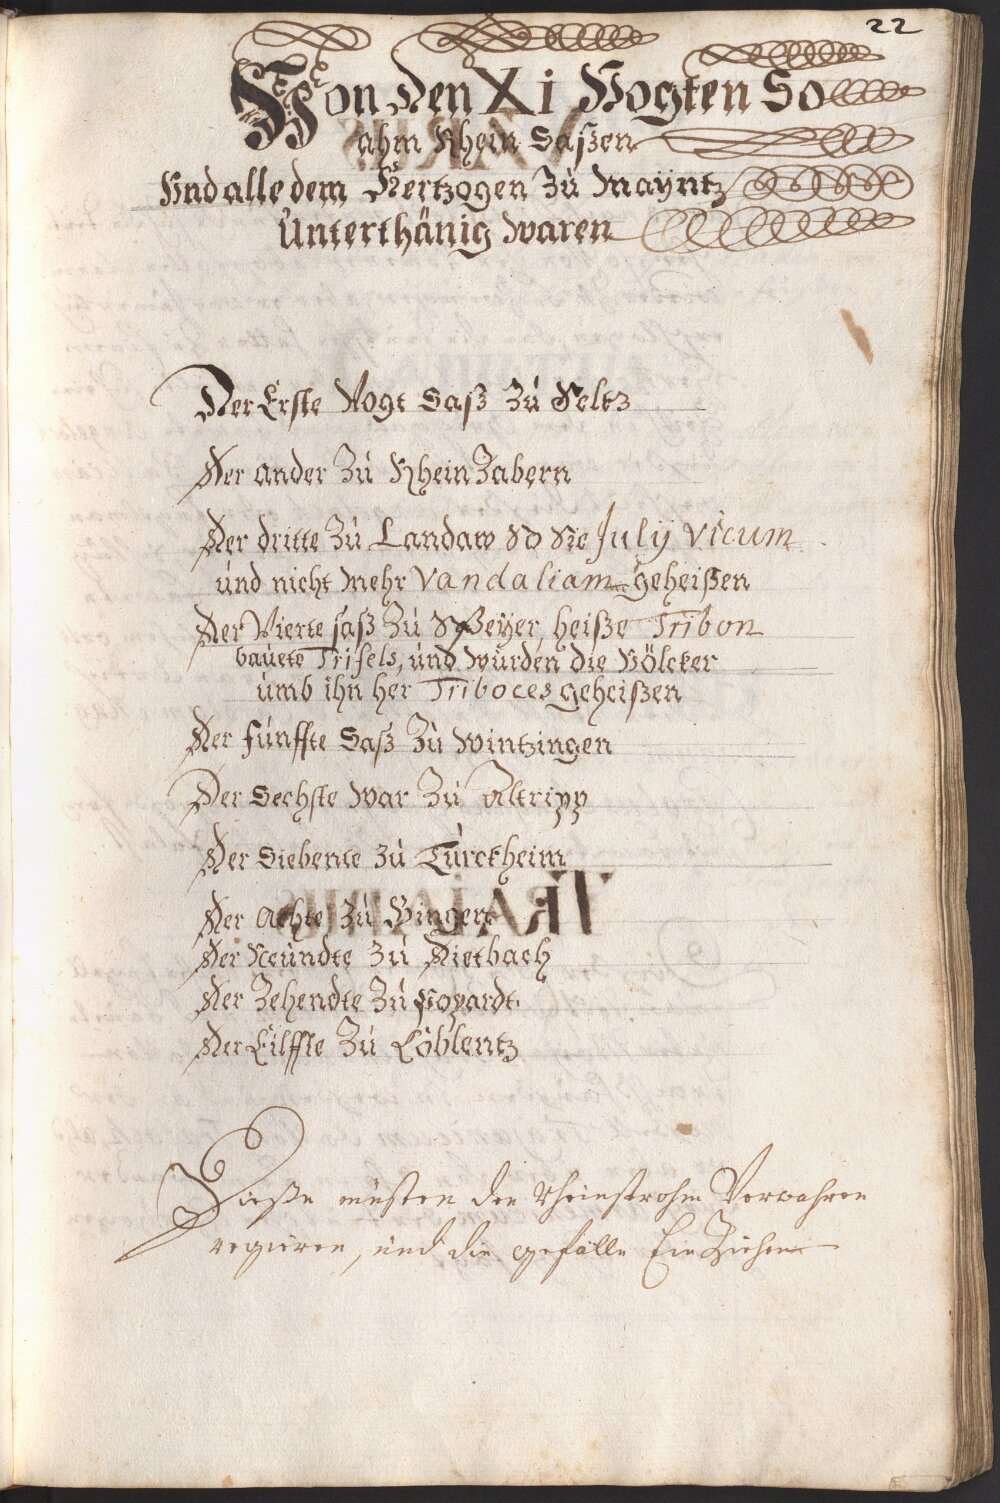 22
Von den XI Vogten So
ahm Rhein Saßen
Und alle dem Hertzogen Zu Mayntz
Unterthänig waren
Der Erste Vogt Saß Zu Seltz
Der ander Zu Rhein Zabern
Der dritte Zu Landaw so sie July vicum
und nicht mehr Vandaliam geheißen
Der Vierte saß Zu Speyer, heiße Tribon
bauete Trifels, und würden die Völcker
umb ihn her Triboces geheißen
Der fünffte Saß Zu Wintzingen
Der Sechste War Zu Altripp
Der Siebente zu Türckheim
Der Achte Zu Bingen
Der Neundte zu Dietbach
Der Zehendte Zu Popardt
Der Eilffte Zu Coblentz
Dieße müsten den Rheinstrohm Verwahren
regieren, und die gefälle Ein Ziehen